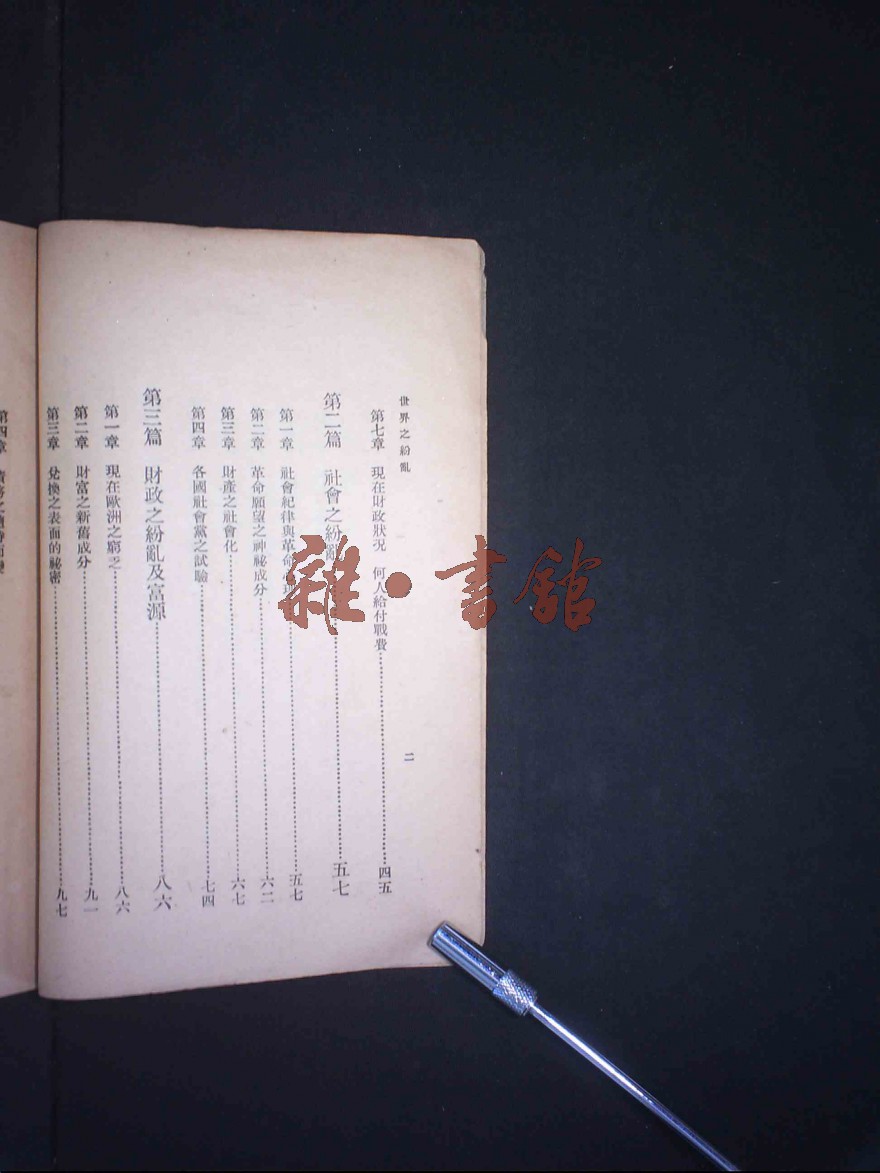 世界之紛亂
二
第七章 現在財政狀况 何人給付戰費……四五
第二篇 社會之紛亂……五七
第一章 社會紀律與革命……五七
第二章 革命願望之神祕成分……六二
第三章 財產之社會化……六七
第四章 各國社會黨之試驗……七四
第三篇 財政之紛亂及富源……八六
第一章 現在歐洲之窮乏……八六
第二章 財富之新舊成分……九一
第三章 兌換之表面的祕密……九七
第四章
雜·書館